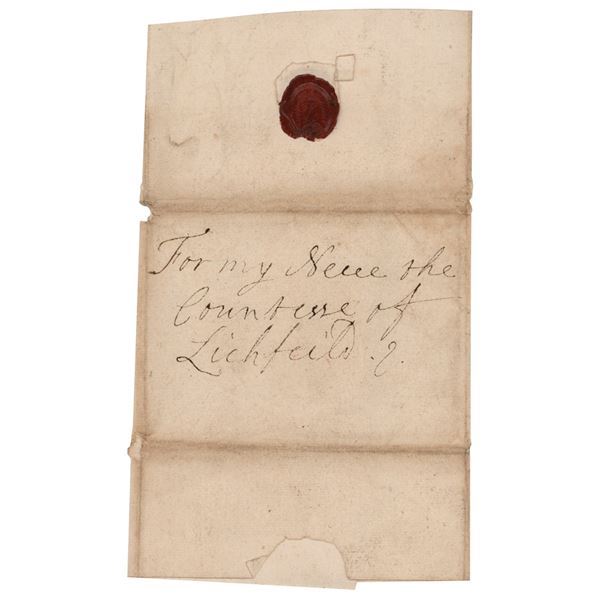 For my Neece the
Countesse of
Lichfeild.